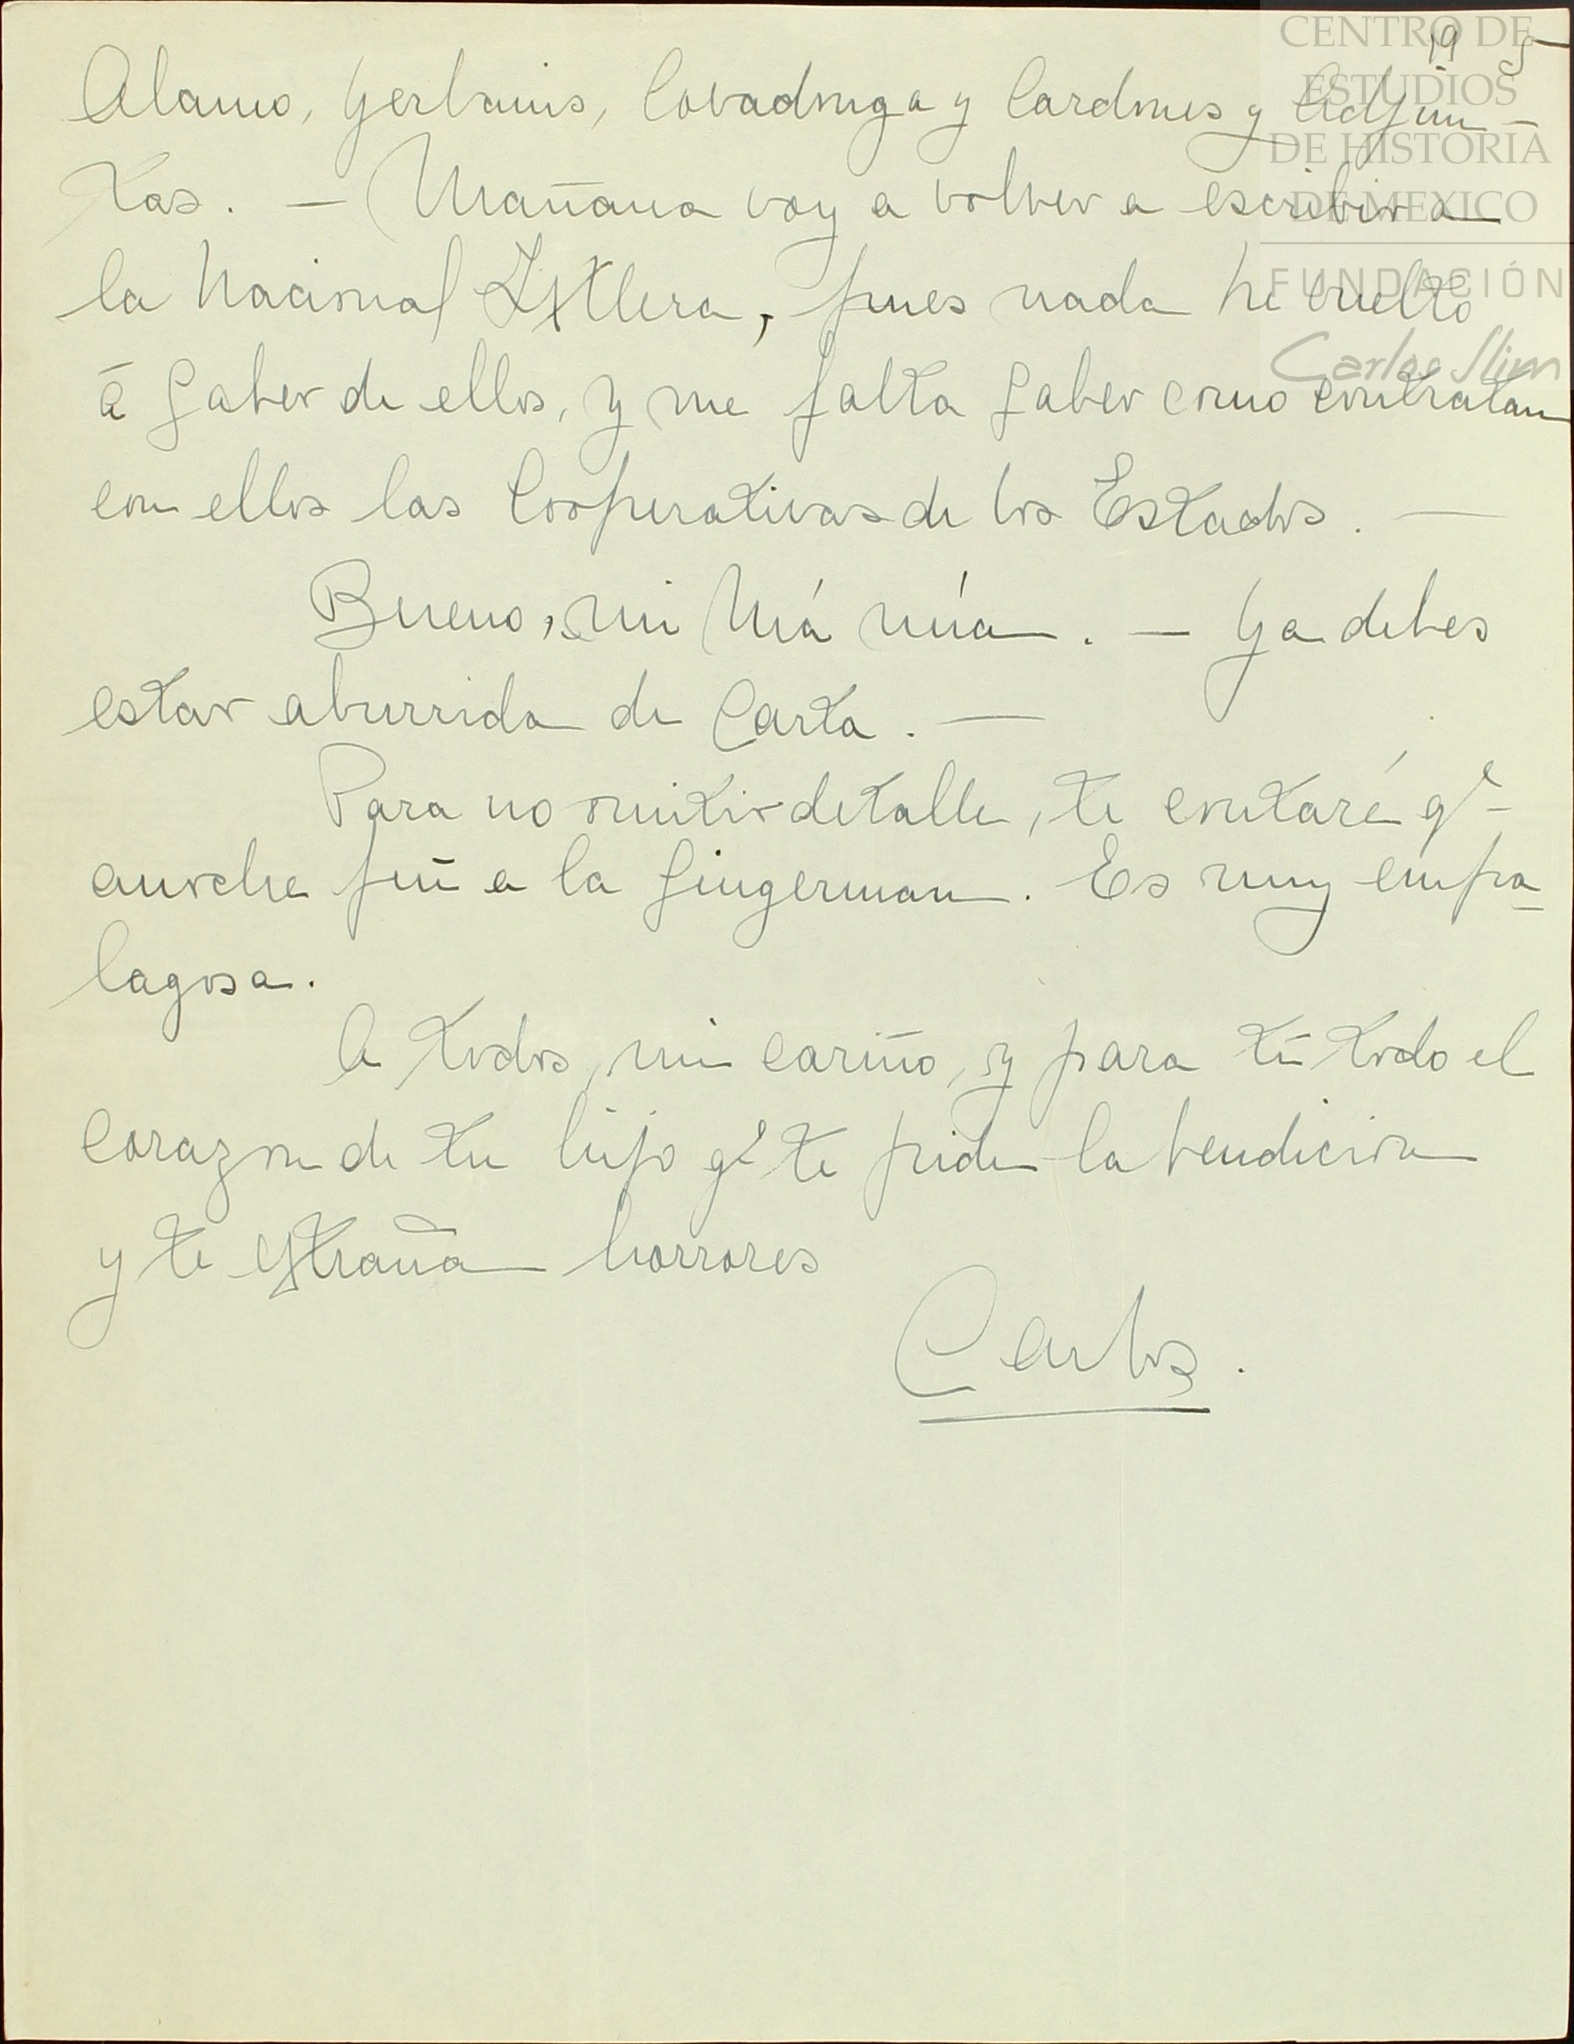 CENTRO DE
ESTUDIOS
DE HISTORIA
DE MEXICO
FUNDACIÓN
Carlos Slim
19 5
Alamo, Yerbanis, Covadonga y Cardones y Adjun-
tas. — Mañana voy a volver a escribir a
la Nacional Ixtlera, pues nada he vuelto
á saber de ellos, y me falta saber como contratan
con ellos las Cooperativas de los Estados. —
Bueno, mi Má mía. — Ya debes
estar aburrida de carta. —
Para no omitir detalle, te contaré qe
anoche fuí a la Singerman. Es muy empa-
lagosa.
A todos, mi cariño, y para tí todo el
corazon de tu hijo qe te pide la bendicion
y te extraña horrores
Carlos.